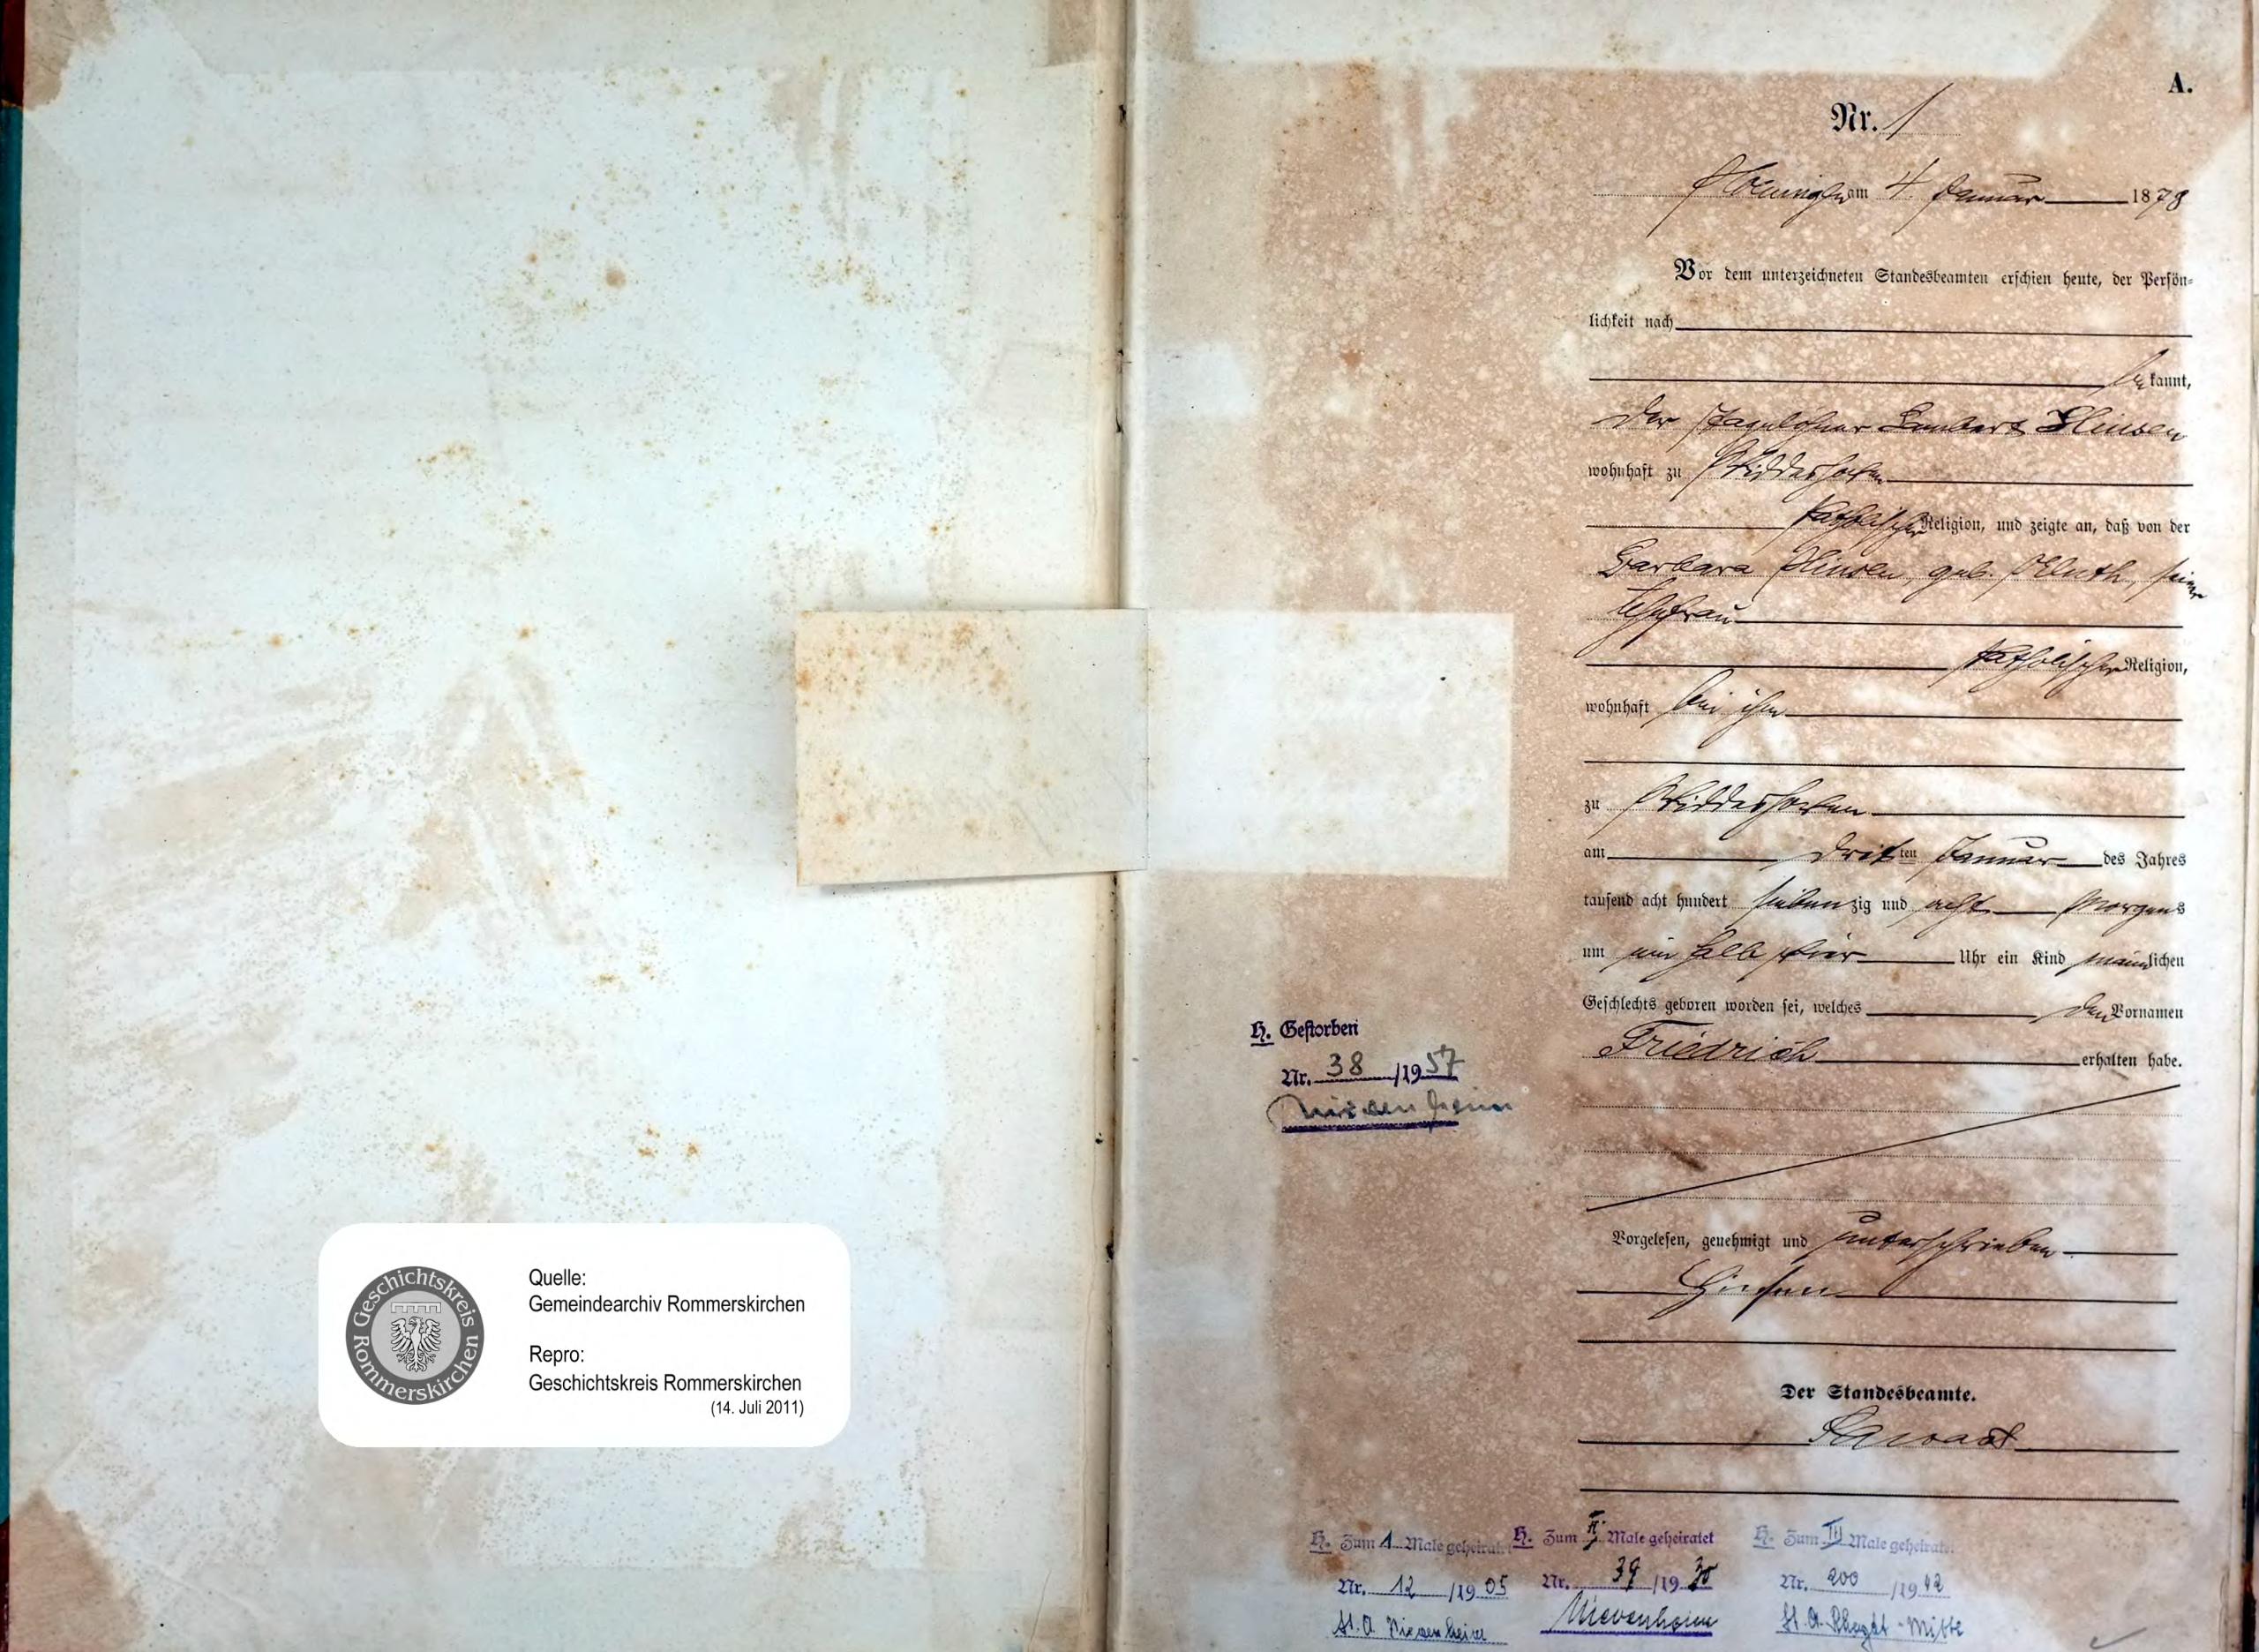 A.
Nr. 1
am 4 Januar 1878
Vor dem unterzeichneten Standesbeamten erschien heute, der Persön-
lichkeit nach
bekannt,
der Tagelöhner Lambert
wohnhaft zu Widdeshoven
katholischer Religion, und zeigte an, daß von der
Barbara geb. seiner
Ehefrau
katholischer Religion,
wohnhaft bei ihm
zu Widdeshoven
am dritten Januar des Jahres
tausend acht hundert siebenzig und acht Morgens
um ein halb vier Uhr ein Kind männlichen
Geschlechts geboren worden sei, welches den Vornamen
Friedrich erhalten habe.
H. Gestorben
Nr. 38 /1957
Nievenheim
Vorgelesen, genehmigt und unterschrieben
Der Standesbeamte.
H. Zum 1 Male geheiratet
Nr. 12 /1905
St. A. Nievenheim
H. Zum II Male geheiratet
Nr. 39 /1930
Nievenheim
H. Zum III Male geheiratet
Nr. 200 /1942
St. A. Rheydt-Mitte
Geschichtskreis Rommerskirchen
Quelle:
Gemeindearchiv Rommerskirchen
Repro:
Geschichtskreis Rommerskirchen
(14. Juli 2011)